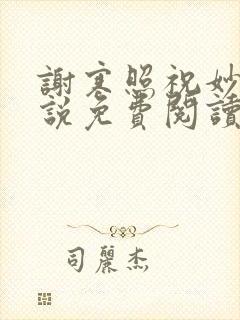 謝寒照祝妙
說免費閱讀
司麗杰